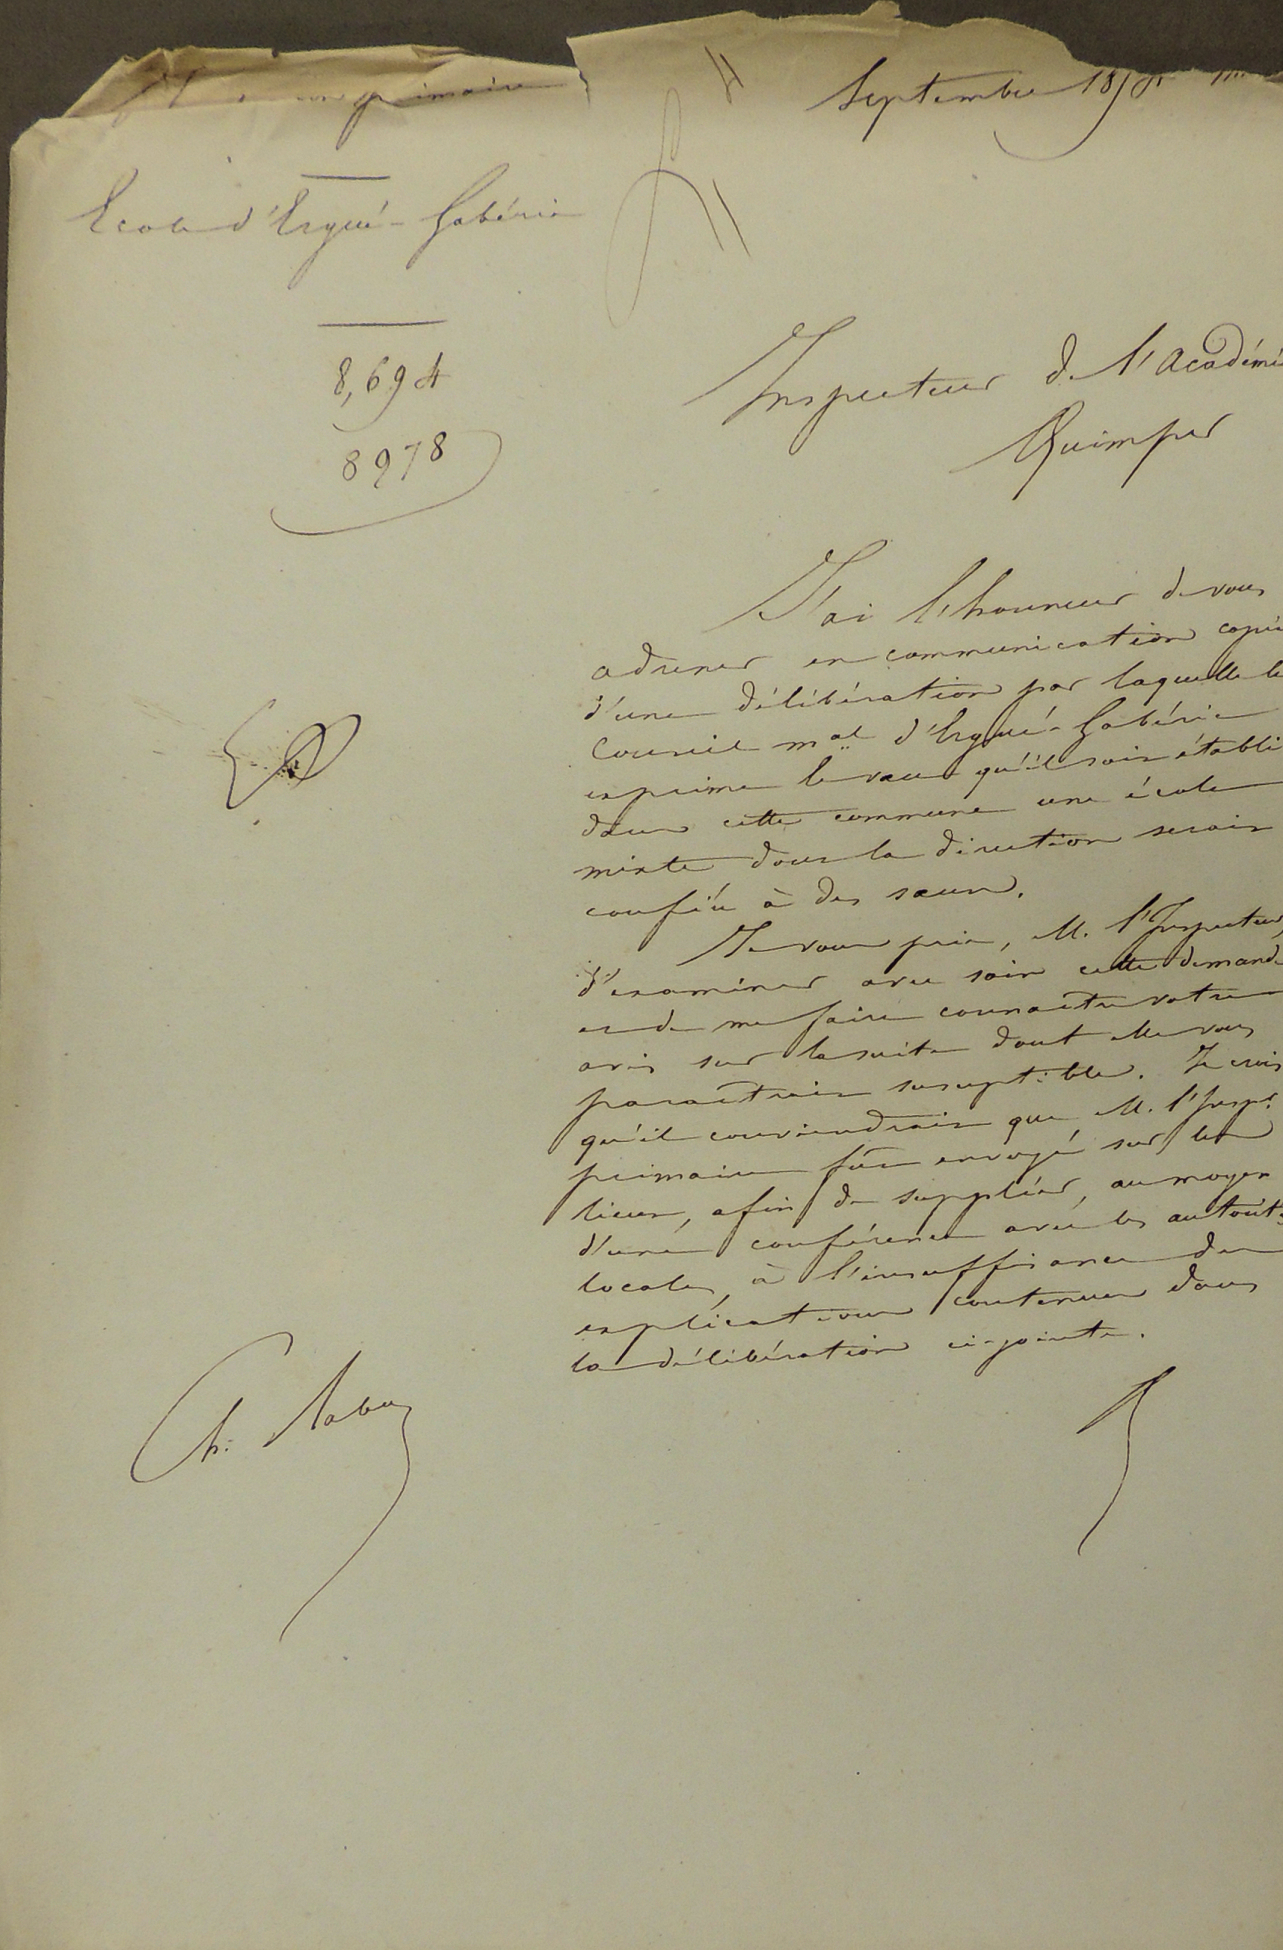 primaire
Septembre 18
Ecole d'Ergué-Gabéric
8,694
8978
Inspecteur de l'Académie
Quimper
J'ai l'honneur de vous
adresser en communication copie
d'une délibération par laquelle le
Conseil mal d'Ergué-Gabéric
exprime le vœu qu'il soit établi
dans cette commune une école
mixte dont la direction serait
confiée à des sœurs.
Je vous prie, M. l'Inspecteur,
d'examiner avec soin cette demande
et de me faire connaître votre
avis sur la suite dont elle vous
paraîtrait susceptible. Je crois
qu'il conviendrait que M. l'Inspr
primaire fût envoyé sur les
lieux, afin de suppléer, au moyen
d'une conférence avec les autorités
locales, à l'insuffisance des
explications contenues dans
la délibération ci-jointe.
Ch.